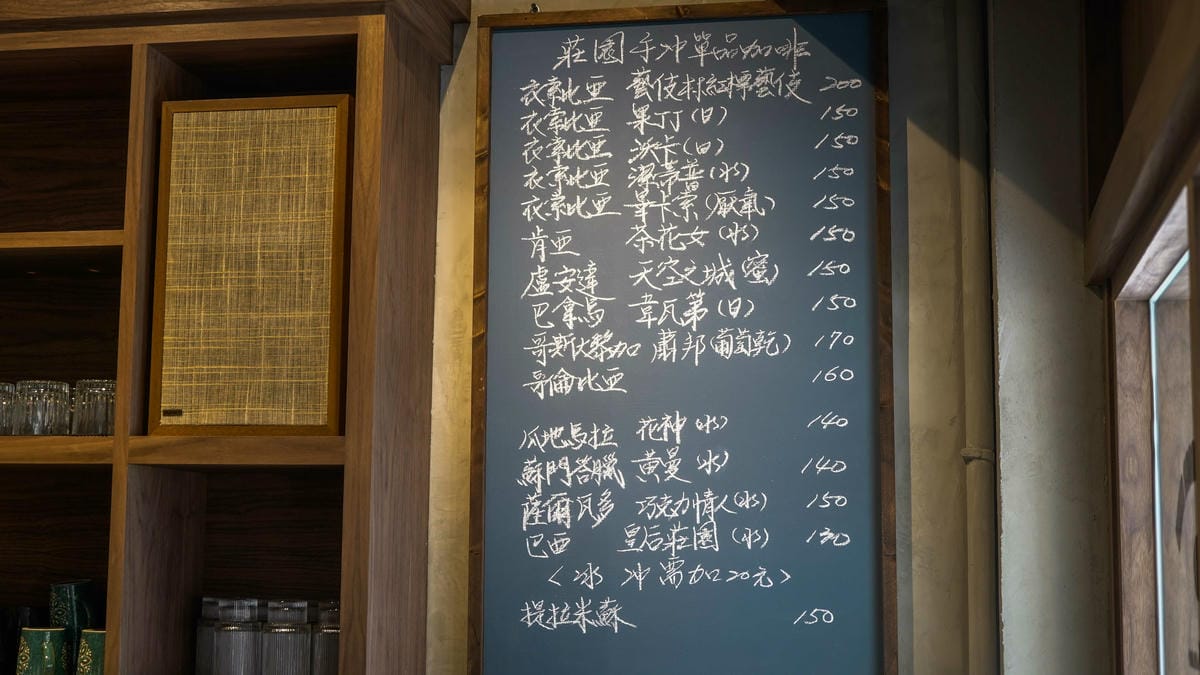 莊園手冲單品咖啡
衣索比亞 藝伎村紅標藝伎 200
衣索比亞 果丁(日) 150
衣索比亞 沃卡(日) 150
衣索比亞 潔蒂普(水) 150
衣索比亞 畢卡索(厭氧) 150
肯亞 茶花女(水) 150
盧安達 天空之城(蜜) 150
巴拿馬 韋瓦第(日) 150
哥斯大黎加 蕭邦(葡萄乾) 170
哥倫比亞 160
瓜地馬拉 花神(水) 140
蘇門答臘 黃曼(水) 140
薩爾瓦多 巧克力情人(水) 150
巴西 皇后莊園(水) 130
<冰 冲需加20元>
提拉米蘇 150